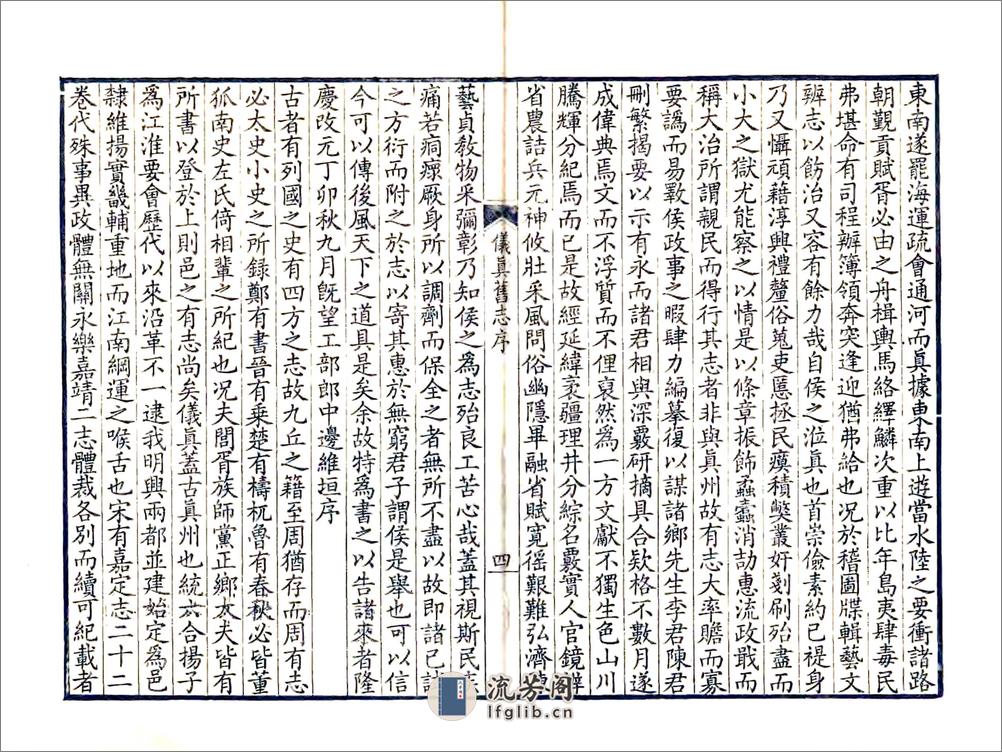 東南遂罷海運疏會通河而眞據東南上遊當水陸之要衝諸路
朝覲貢賦胥必由之舟楫輿馬絡繹鱗次重以比年島夷肆毒民
弗堪命有司程辦簿領奔突逢迎猶弗給也況於稽圖牒輯藝文
辨志以飭治又容有餘力哉自侯之涖眞也首崇儉素約己禔身
乃又懾頑藉淳興禮釐俗蒐吏慝拯民瘼積獘叢奸剗刷殆盡而
小大之獄尤能察之以情是以條章振飾蟊蠹消訪惠流政戢而
稱大治所謂親民而得行其志者非與眞州故有志大率贍而寡
要譌而易斁侯政事之暇肆力編摹復以謀諸鄉先生李君陳君
刪繁揭要以示有永而諸君相與深覈研摘具合欵格不數月遂
成偉典焉文而不浮質而不俚裒然爲一方文獻不獨生色山川
騰輝分紀焉而已是故經延緯袤疆理井分綜名覈實人官鏡辟
省農詰兵元神攸壯采風問俗幽隱畢融省賦寬徭艱難弘濟
儀眞舊志序
四
藝貞敎物采彌彰乃知侯之爲志殆良工苦心哉蓋其視斯民
痛若痌瘝厥身所以調劑而保全之者無所不盡以故即諸已
之方衍而附之於志以寄其惠於無窮君子謂侯是舉也可以信
今可以傳後風天下之道具是矣余故特爲書之以告諸來者隆
慶改元丁卯秋九月旣望工部郎中邊維垣序
古者有列國之史有四方之志故九丘之籍至周猶存而周有志
必太史小史之所録鄭有書晉有乘楚有檮杌魯有春秋必皆董
狐南史左氏倚相輩之所紀也况夫閭胥族師黨正鄉大夫皆有
所書以登於上則邑之有志尚矣儀眞蓋古眞州也統六合揚子
爲江淮要會歷代以來沿革不一逮我明興兩都並建始定爲邑
隸維揚實畿輔重地而江南綱運之喉舌也宋有嘉定志二十二
卷代殊事異政體無關永樂嘉靖二志體裁各別而續可紀載者
流芳阁
lfglib.cn